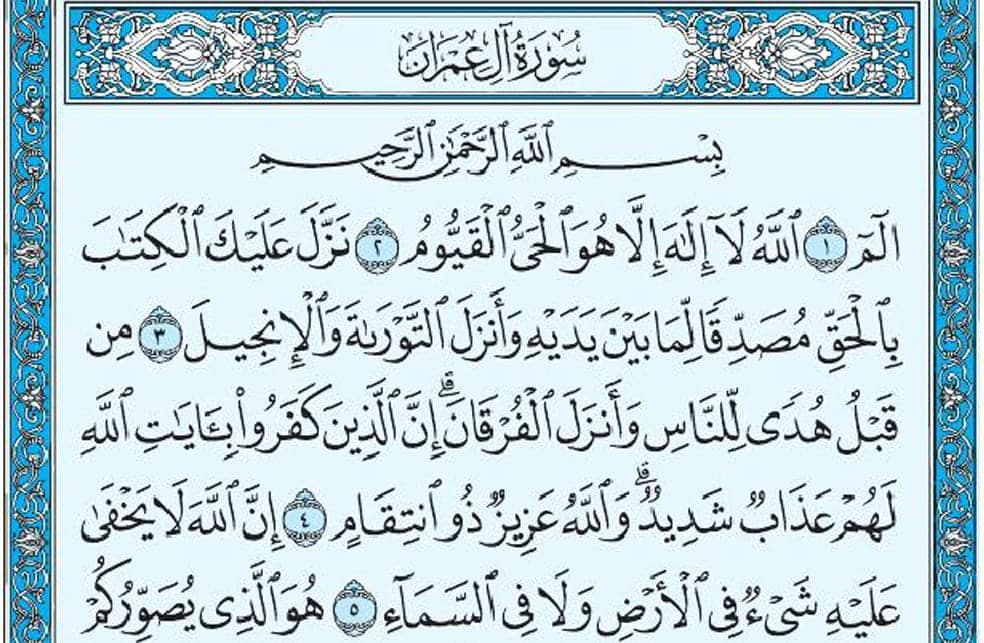 سُورَةُ آلِ عِمْرَانَ
بِسْمِ ٱللَّهِ ٱلرَّحْمَٰنِ ٱلرَّحِيمِ
الٓمٓ ١ ٱللَّهُ لَآ إِلَٰهَ إِلَّا هُوَ ٱلْحَىُّ ٱلْقَيُّومُ ٢ نَزَّلَ عَلَيْكَ ٱلْكِتَٰبَ
بِٱلْحَقِّ مُصَدِّقًا لِّمَا بَيْنَ يَدَيْهِ وَأَنزَلَ ٱلتَّوْرَىٰةَ وَٱلْإِنجِيلَ ٣ مِن
قَبْلُ هُدًى لِّلنَّاسِ وَأَنزَلَ ٱلْفُرْقَانَ ۗ إِنَّ ٱلَّذِينَ كَفَرُوا۟ بِـَٔايَٰتِ ٱللَّهِ
لَهُمْ عَذَابٌ شَدِيدٌ ۗ وَٱللَّهُ عَزِيزٌ ذُو ٱنتِقَامٍ ٤ إِنَّ ٱللَّهَ لَا يَخْفَىٰ
عَلَيْهِ شَىْءٌ فِى ٱلْأَرْضِ وَلَا فِى ٱلسَّمَآءِ ٥ هُوَ ٱلَّذِى يُصَوِّرُكُمْ